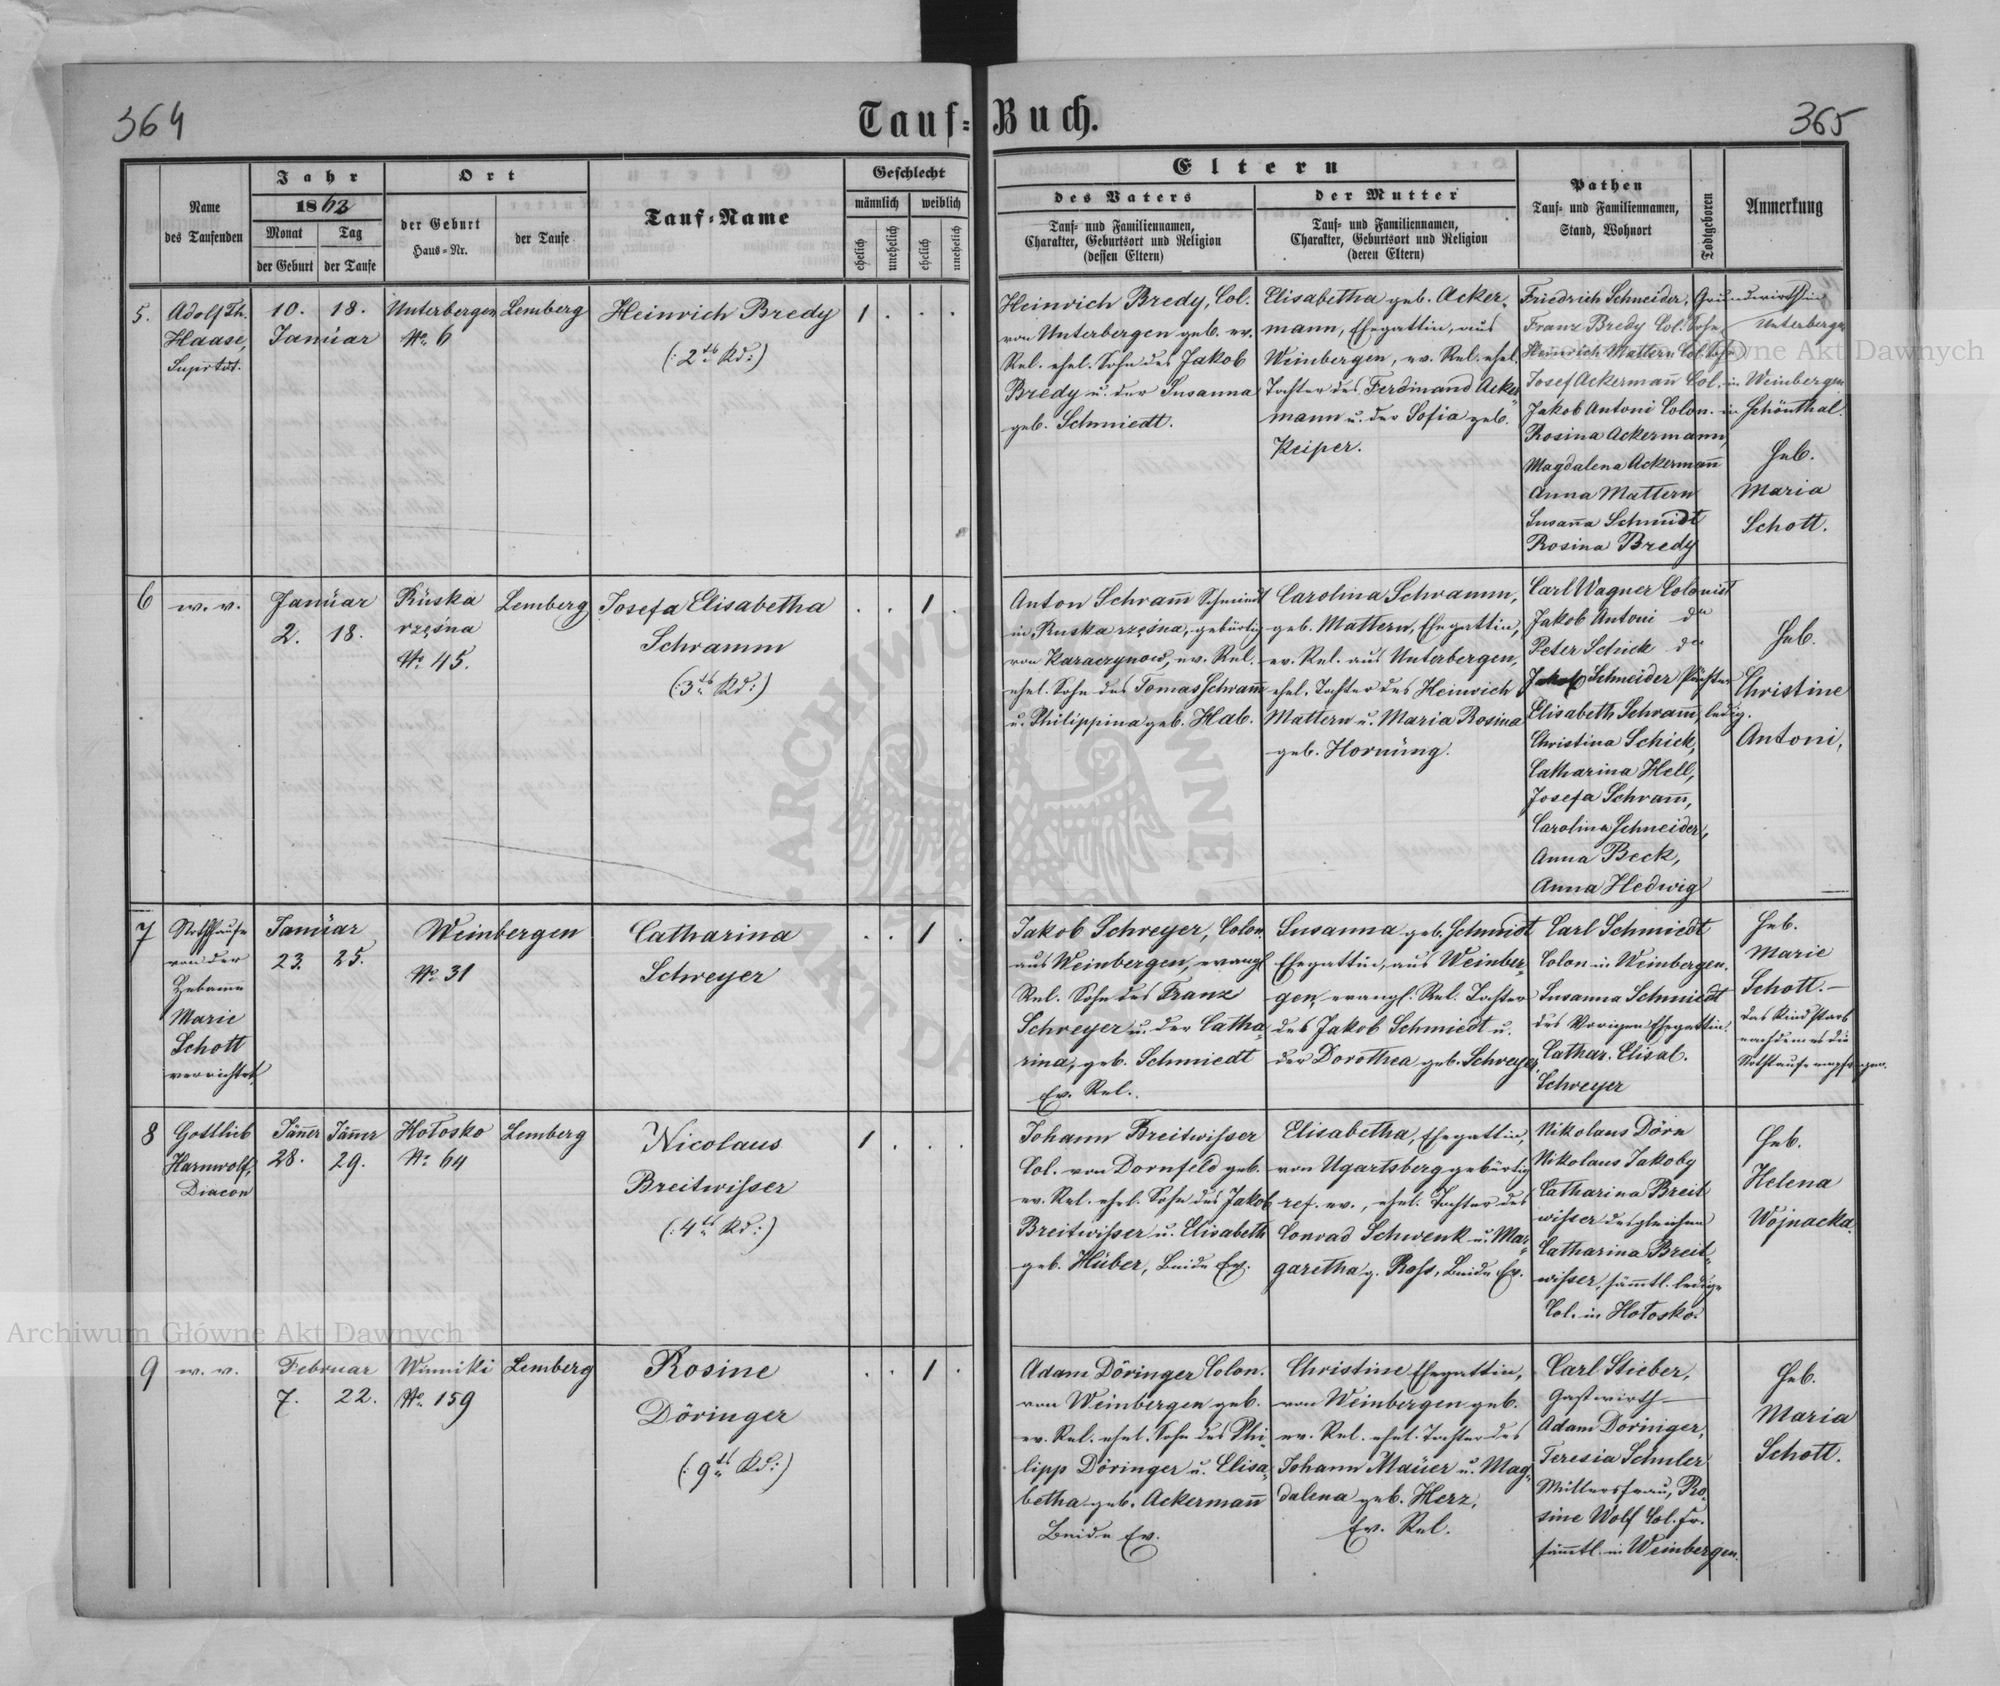 364
Tauf-Buch.
365
Name
des Taufenden
Jahr
1863
Monat
Tag
der Geburt
der Taufe
Ort
der Geburt
Haus-Nr.
der Taufe
Tauf-Name
Geschlecht
männlich
weiblich
ehelich
unehelich
ehelich
unehelich
Eltern
des Vaters
Tauf- und Familiennamen,
Charakter, Geburtsort und Religion
(dessen Eltern)
der Mutter
Tauf- und Familiennamen,
Charakter, Geburtsort und Religion
(deren Eltern)
Pathen
Tauf- und Familiennamen,
Stand, Wohnort
Todtgeboren
Anmerkung
5.
Adolf Th.
Haase,
Suprtdt.
10. 18.
Januar
Unterbergen
No. 6
Lemberg
Heinrich Bredy
(: 2tes Kd :)
1 . . .
Heinrich Bredy, Col.
von Unterbergen geb. ev.
Rel. ehel. Sohn des Jakob
Bredy u. der Susanna
geb. Schmiedt.
Elisabetha geb. Acker-
mann, Ehegattin, aus
Weinbergen, ev. Rel. ehel.
Tochter des Ferdinand Acker-
mann u. der Sofia geb.
Keiper.
Friedrich Schneider, Grundwirthsin
Franz Bredy Col. Sohn, Unterbergen
Heinrich Mattern Col. Sohn
Josef Ackermann Col. in Weinbergen
Jakob Antoni Colon. in Schönthal.
Rosina Ackermann,
Magdalena Ackermann
Anna Mattern
Susanna Schmidt
Rosina Bredy
Heb.
Maria
Schott.
6
w. v.
Januar
2. 18.
Ruska
rzęsna
No. 45.
Lemberg
Josefa Elisabetha
Schramm
(: 3tes Kd :)
. . 1 .
Anton Schramm Schmiedt
in Ruska rzęsna, gebürtig
von Karaczynow, ev. Rel.
ehel. Sohn des Tomas Schramm
u. Philippina geb. Hab.
Carolina Schramm,
geb. Mattern, Ehegattin,
ev. Rel. aus Unterbergen,
ehel. Tochter des Heinrich
Mattern u. Maria Rosina
geb. Hornung.
Carl Wagner Colonist
Jakob Antoni dto
Peter Schick dto
Jakob Schneider Pächter
Elisabeth Schramm, ledig.
Christina Schick,
Catharina Hell,
Josefa Schramm,
Carolina Schneider,
Anna Beck,
Anna Hedwig
Heb.
Christine
Antoni,
7
Nothtaufe
von der
Hebamme
Marie
Schott
verrichtet,
Januar
23. 25.
Weinbergen
No. 31
Catharina
Schreyer
. . 1 .
Jakob Schreyer, Colon.
aus Weinbergen, evangl.
Rel. Sohn des Franz
Schreyer u. der Catha-
rina, geb. Schmiedt
Ev. Rel.
Susanna geb. Schmiedt
Ehegattin, aus Weinber-
gen evangl. Rel. Tochter
des Jakob Schmiedt u.
der Dorothea geb. Schreyer.
Carl Schmiedt
Colon in Weinbergen.
Susanna Schmiedt
des Vorigen Ehegattin.
Cathar. Elisab.
Schreyer
Heb.
Marie
Schott. –
das Kind starb
nachdem es die
Nothtaufe empfangen.
8
Gottlieb
Harnwolf,
Diacon
Jänner Jänner
28. 29.
Hołosko
No. 64
Lemberg
Nicolaus
Breitwisser
(: 4tes Kd :)
1 . . .
Johann Breitwisser
Col. von Dornfeld geb.
ev. Rel. ehel. Sohn des Jakob
Breitwisser u. Elisabeth
geb. Huber, beide Ev.
Elisabetha, Ehegattin,
von Ugartsberg gebürtig
ref. ev., ehel. Tochter des
Conrad Schwenk u. Mar-
garetha g. Ross, beide Ev.
Nikolaus Dörn
Nikolaus Jakoby
Catharina Breit
wisser desgleichen
Catharina Breit-
wisser, sämmtl. ledige
Col. in Hołosko.
Heb.
Helena
Wojnacka.
9
w. v.
Februar
7. 22.
Winniki
No. 159
Lemberg
Rosine
Döringer
(: 9tes Kd :)
. . 1 .
Adam Döringer Colon.
von Weinbergen geb.
ev. Rel. ehel. Sohn des Phi-
lipp Döringer u. Elisa-
betha geb. Ackermann
Beide Ev.
Christine Ehegattin,
von Weinbergen geb.
ev. Rel. ehel. Tochter des
Johann Mauer u. Mag-
dalena geb. Herz,
Ev. Rel.
Carl Stieber,
Gastwirth –
Adam Doringer,
Teresia Schuler
Müllersfrau, Ro-
sine Wolf Col. Fr.
sämmtl. in Weinbergen.
Heb.
Maria
Schott.
Archiwum Główne Akt Dawnych